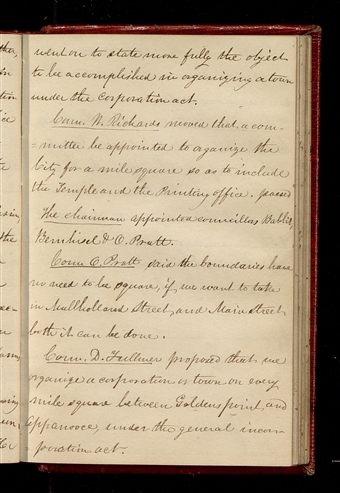 went on to state more fully the object
to be accomplished in organizing a town
under the corporation act.
Coun. W. Richards moved that a com-
=mittee be appointed to oganize the
City for a mile square so as to include
the Temple and the Printing office. passed
The chairman appointed councillors Babbit,
Bernhisel & O. Pratt.
Coun O. Pratt said the boundaries have
no need to be square, if we want to take
in Mullholland Street, and Main Street
both it can be done.
Coun. D. Fullmer proposed that we
organize a corporation or town on every
mile square between Goldens point, and
Appanooce, under the general incor-
poration act.